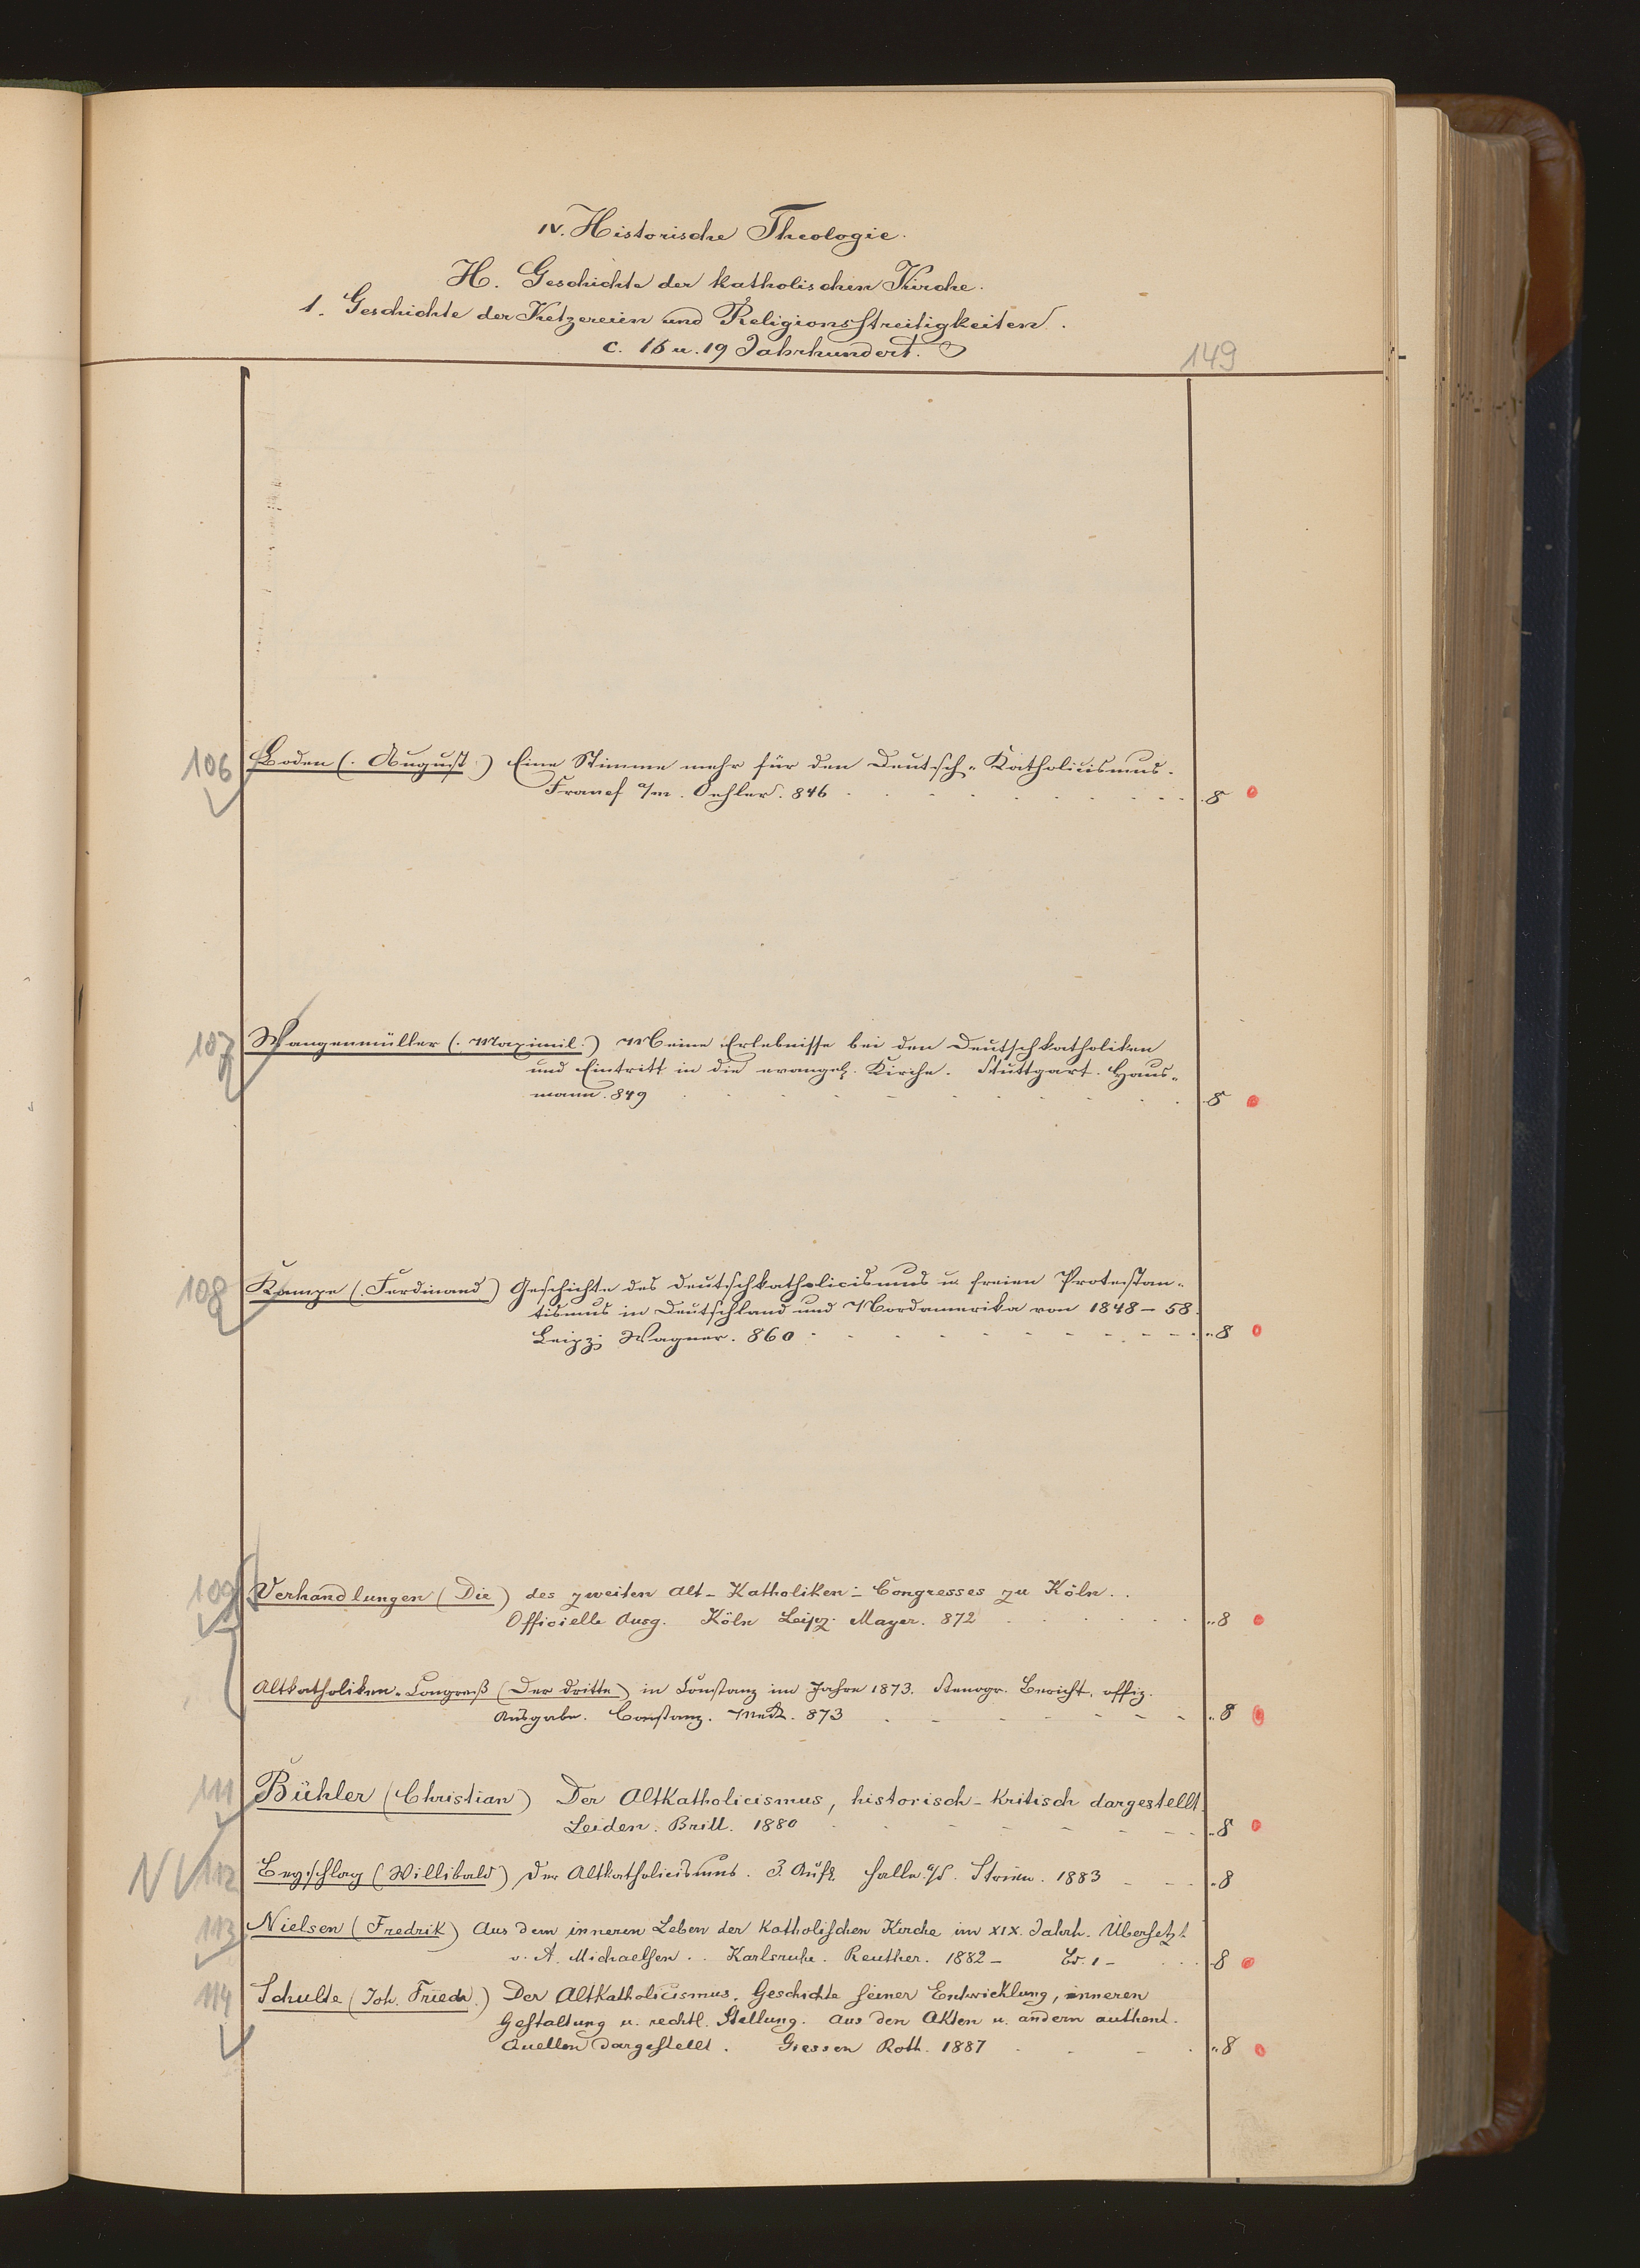 IV. Historische Theologie.
H. Geschichte der katholischen Kirche.
1. Geschichte der Ketzereien und Religionsstreitigkeiten.
c. 16 u. 19 Jahrhundert.
149
106 Boden (. August.) Eine Stimme mehr für den Deutsch-Katholicismus.
Francf a/m. Oehler. 846 8
107 Wangenmüller (. Maximil.) Meine Erlebnisse bei den Deutschkatholiken
und Eintritt in die evangel. Kirche. Stuttgart. Haus-
mann. 849 8
108 Kampe (. Ferdinand) Geschichte des Deutschkatholicismus u. freien Protestan-
tismus in Deutschland und Nordamerika von 1848-58.
Leipz. Wagner. 860 8
109 Verhandlungen (Die) des zweiten Alt-Katholiken-Congresses zu Köln.
Officielle Ausg. Köln Leipz. Mayer. 872 8
Altkatholiken-Congreß (Der dritte) in Constanz im Jahre 1873. Stenogr. Bericht. offiz.
Ausgabe. Constanz. Meck. 873 8
111 Bühler (Christian) Der Altkatholicismus, historisch-kritisch dargestellt.
Leiden. Brill. 1880 8
N 112 Beyschlag (Willibald) Der Altkatholicismus. 3. Aufl. Halle a/S. Strien. 1883 8
113 Nielsen (Fredrik) Aus dem inneren Leben der katholischen Kirche im XIX. Jahrh. Übersetzt
v. A. Michaelsen. Karlsruhe. Reuther. 1882 - Bd. 1 - 8
114 Schulte (Joh. Friedr.) Der Altkatholicismus. Geschichte seiner Entwicklung, inneren
Gestaltung u. rechtl. Stellung. Aus den Akten u. andern authent.
Quellen dargestellt. Giessen Roth. 1887 8